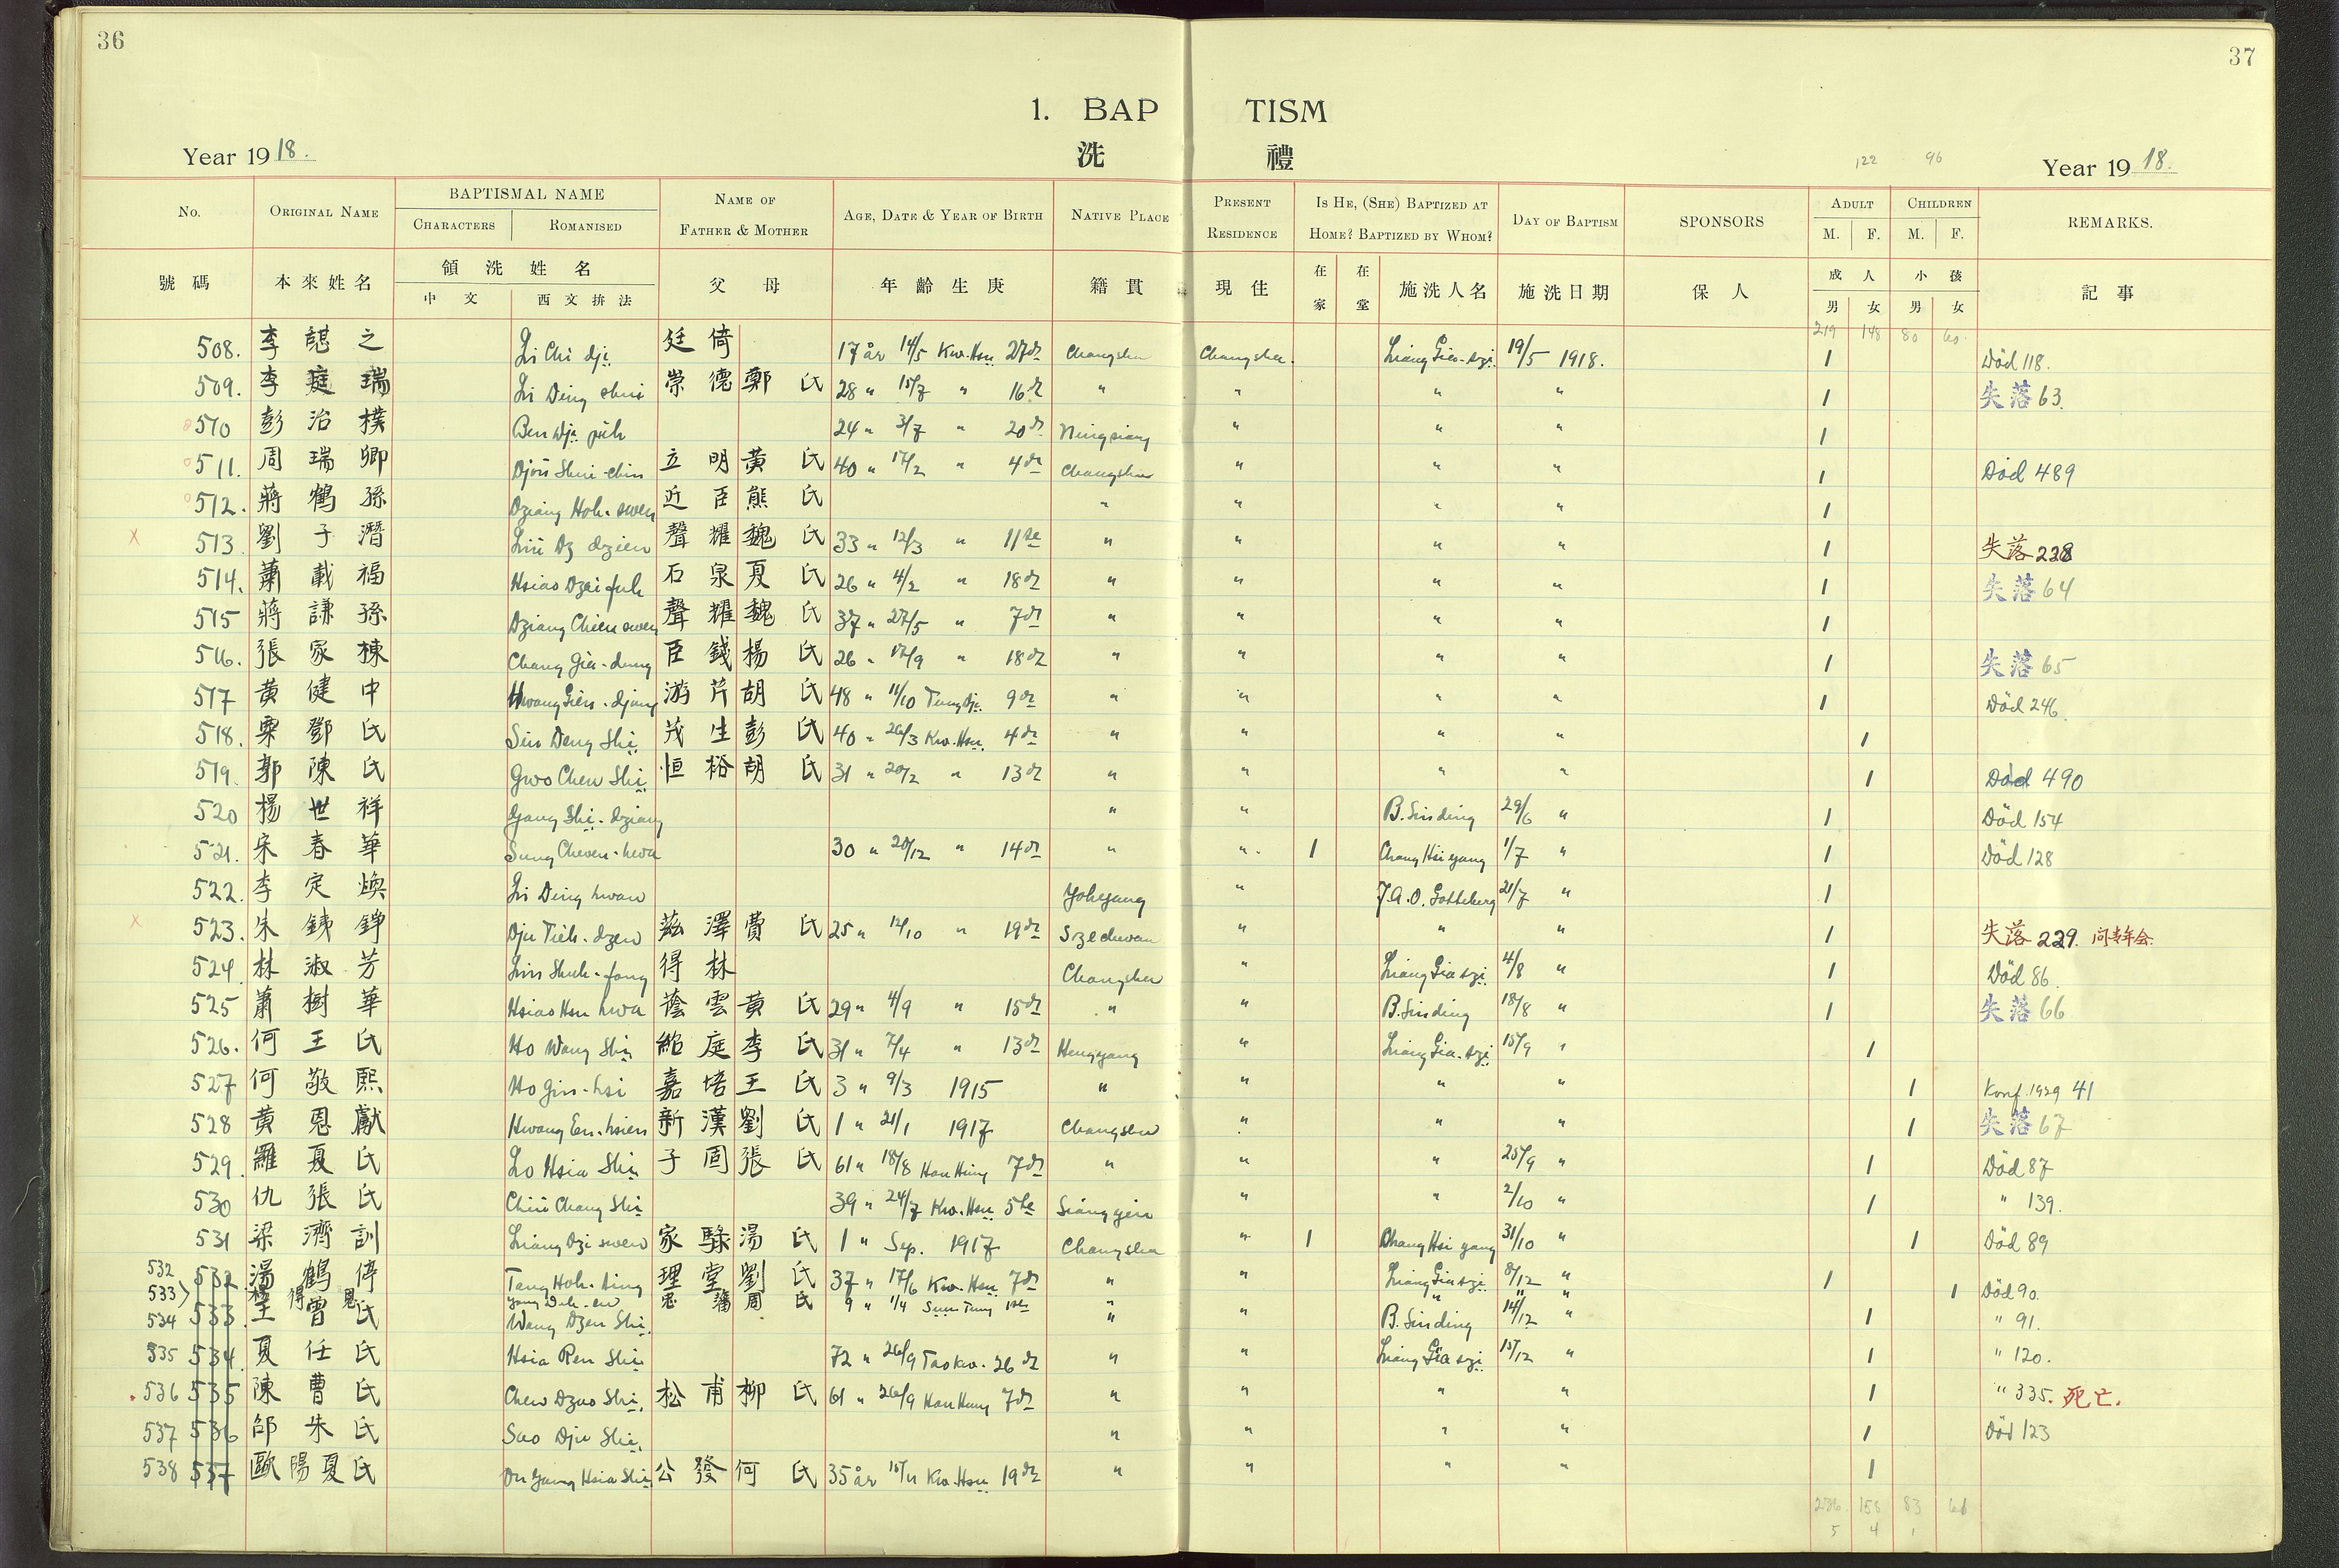 36
37
1. BAP TISM
洗 禮
Year 19 18.
122 96
Year 19 18.
No. ORIGINAL NAME BAPTISMAL NAME CHARACTERS ROMANISED NAME OF FATHER & MOTHER AGE, DATE & YEAR OF BIRTH NATIVE PLACE PRESENT RESIDENCE IS HE, (SHE) BAPTIZED AT HOME? BAPTIZED BY WHOM? DAY OF BAPTISM SPONSORS ADULT M. F. CHILDREN M. F. REMARKS.
號碼 本來姓名 領洗姓名 中文 西文拚法 父母 年齡生庚 籍貫 現住 在家 在堂 施洗人名 施洗日期 保人 成人 男 女 小孩 男 女 記事
219 148 80 60
508. 李 之 Li Chi dji 廷倚 17 år 14/5 Kw. Hsu 27de Changsha Changsha. Liang Gia-szi 19/5 1918. 1 Död 118.
509. 李庭瑞 Li Ding shui 崇德 鄭氏 28 " 15/7 " 16de " " " " 1 失落 63.
510 彭治樸 Ben Dji puh 24 " 3/7 " 20de Ningsiang " " " 1
511. 周瑞卿 Djou Shui-chin 立明 黃氏 40 " 17/2 " 4de Changsha " " " 1 Död 489
512. 蔣鶴孫 Dziang Hoh-swen 近臣 熊氏 " " " " 1
X 513 劉子潛 Liu Dz dzien 聲耀 魏氏 33 " 12/3 " 11te " " " " 1 失落 228
514. 蕭載福 Hsiao Dzai fuh 石泉 夏氏 26 " 4/2 " 18de " " " " 1 失落 64
515 蔣謙孫 Dziang Chien swen 聲耀 魏氏 37 " 27/5 " 7de " " " " 1
516. 張家棟 Chang Gia-dung 臣錢 楊氏 26 " 17/9 " 18de " " " " 1 失落 65
517 黃健中 Hwang Gien-djung 游芹 胡氏 48 " 11/10 Tung Dji 9de " " " " 1 Död 246.
518. 粟鄧氏 Sin Deng Shi 茂生 彭氏 40 " 26/3 Kw. Hsu 4de " " " " 1
519. 郭陳氏 Gwo Chen Shi 恒裕 胡氏 31 " 20/2 " 13de " " " " 1 Död 490
520 楊世祥 Yang Shi-dziang " " B. Sinding 29/6 " 1 Död 154
521. 宋春華 Sung Chwen-hwa 30 " 20/12 " 14de " " 1 Chang Hsi yang 1/7 " 1 Död 128
522. 李定煥 Li Ding hwan Yohyang " J.A.O. Gotteberg 21/7 " 1
X 523. 朱鐵錚 Dju Tieh-dzen 茲澤 費氏 25 " 12/10 " 19de Szechwan " " " 1 失落 229. 问青年会
524. 林淑芳 Lin Shuh-fang 得林 Changsha " Liang Gia szi 4/8 " 1 Död 86.
525 蕭樹華 Hsiao Hsu hwa 蔭雲 黃氏 29 " 4/9 " 15de " " B. Sinding 18/8 " 1 失落 66
526. 何王氏 Ho Wang Shi 紹庭 李氏 31 " 7/4 " 13de Hengyang " Liang Gia-szi 15/9 " 1
527 何敬熙 Ho Gin-hsi 嘉培 王氏 3 " 9/3 1915 " " " " 1 Konf. 1929 41
528 黃恩獻 Hwang En-hsien 新漢 劉氏 1 " 21/1 1917 Changsha " " " 1 失落 67
529. 羅夏氏 Lo Hsia Shi 子固 張氏 61 " 18/8 Han Hung 7de " " " 25/9 " 1 Död 87
530 仇張氏 Chiu Chang Shi 39 " 24/7 Kw. Hsu 5te Siangyin " " 2/10 " 1 " 139.
531 梁濟訓 Liang Dzi swen 家騄 湯氏 1 " Sep. 1917 Changsha " 1 Chang Hsi yang 31/10 " 1 Död 89
532 532 湯鶴停 Tang Hoh-ting 理堂 劉氏 37 " 17/6 Kw. Hsu 7de " " Liang Gia szi 8/12 " 1
533 楊得恩 Yang Deh-en 周氏 9 " 1/4 Suen Tung 1ste " " " " 1 Död 90.
534 533. 王曾氏 Wang Dzen Shi " " B. Sinding 14/12 " 1 " 91.
535 534. 夏任氏 Hsia Ren Shi 72 " 26/9 Tao kw. 26de " " Liang Gia szi 15/12 " 1 " 120.
536 535 陳曹氏 Chen Dzao Shi 松甫 柳氏 61 " 26/9 Han Hung 7de " " " " 1 " 335. 死亡.
537 536 邵朱氏 Sao Dju Shi " " " " 1 Död 123
538 537 歐陽夏氏 Ou Yang Hsia Shi 公發 何氏 35 år 15/11 Kw. Hsu 19de " " " " 1
236 158 83 61
5 4 1